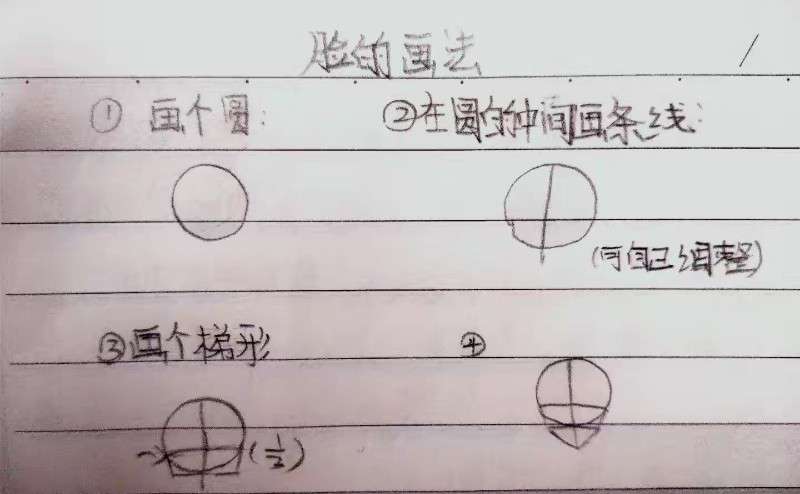 脸的画法
1
① 画个圆:
②在圆的中间画条线:
(可自己调整)
③画个梯形
④
(1/2)